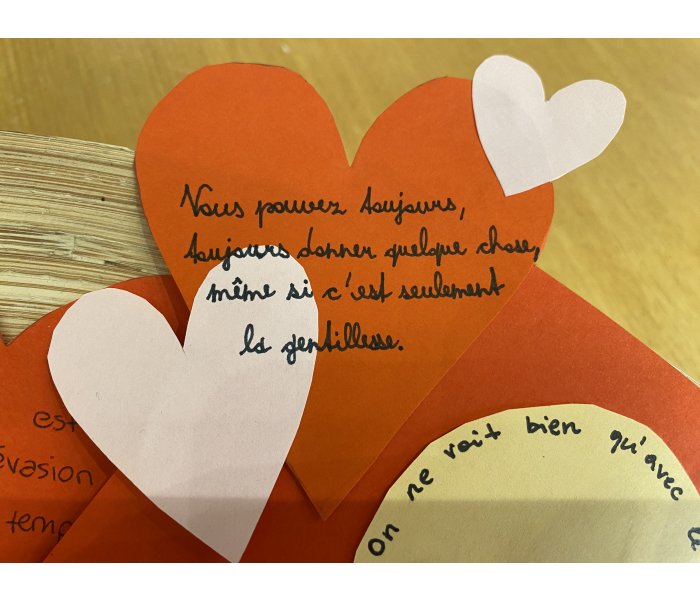 Vous pouvez toujours,
toujours donner quelque chose,
même si c'est seulement
la gentillesse.
est
évasion
temp
On ne voit bien qu'avec